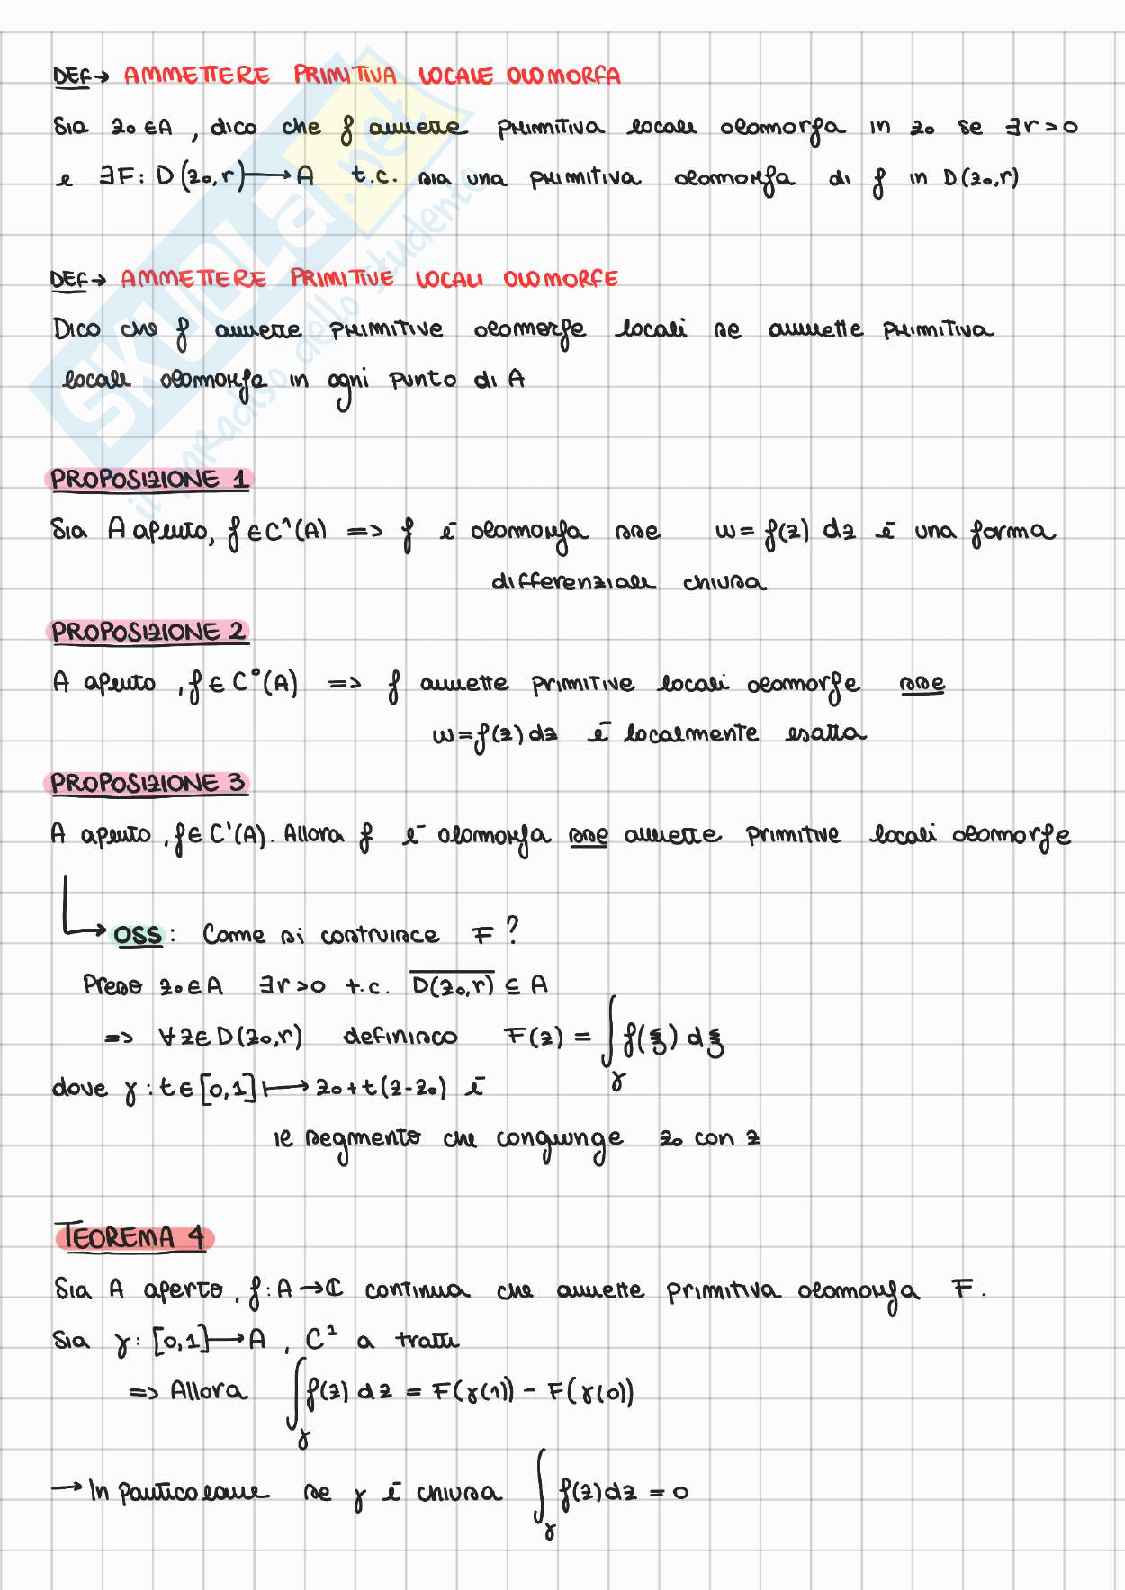 DEF → AMMETTERE PRIMITIVA LOCALE OLOMORFA
Sia z₀ ∈ A , dico che f ammette primitiva locale olomorfa in z₀ se ∃ r > 0
e ∃ F : D(z₀,r) ⟼ A t.c. sia una primitiva olomorfa di f in D(z₀,r)
DEF → AMMETTERE PRIMITIVE LOCALI OLOMORFE
Dico che f ammette primitive olomorfe locali se ammette primitiva
locale olomorfa in ogni punto di A
PROPOSIZIONE 1
Sia A aperto, f ∈ C¹(A) => f è olomorfa sse w = f(z) dz è una forma
differenziale chiusa
PROPOSIZIONE 2
A aperto , f ∈ C°(A) => f ammette primitive locali olomorfe sse
w = f(z) dz è localmente esatta
PROPOSIZIONE 3
A aperto , f ∈ C¹(A). Allora f è olomorfa sse ammette primitive locali olomorfe
→ OSS : Come si costruisce F ?
Preso z₀ ∈ A ∃ r > 0 t.c. \overline{D(z₀,r)} ⊆ A
=> ∀ z ∈ D(z₀,r) definisco F(z) = ∫_γ f(ξ) dξ
dove γ : t ∈ [0,1] ⟼ z₀ + t(z - z₀) è
il segmento che congiunge z₀ con z
TEOREMA 4
Sia A aperto , f : A → ℂ continua che ammette primitiva olomorfa F .
Sia γ : [0,1] ⟼ A , C¹ a tratti
=> Allora ∫_γ f(z) dz = F(γ(1)) - F(γ(0))
→ In particolare se γ è chiusa ∫_γ f(z) dz = 0
SKUOLA.net
il paradiso dello studente